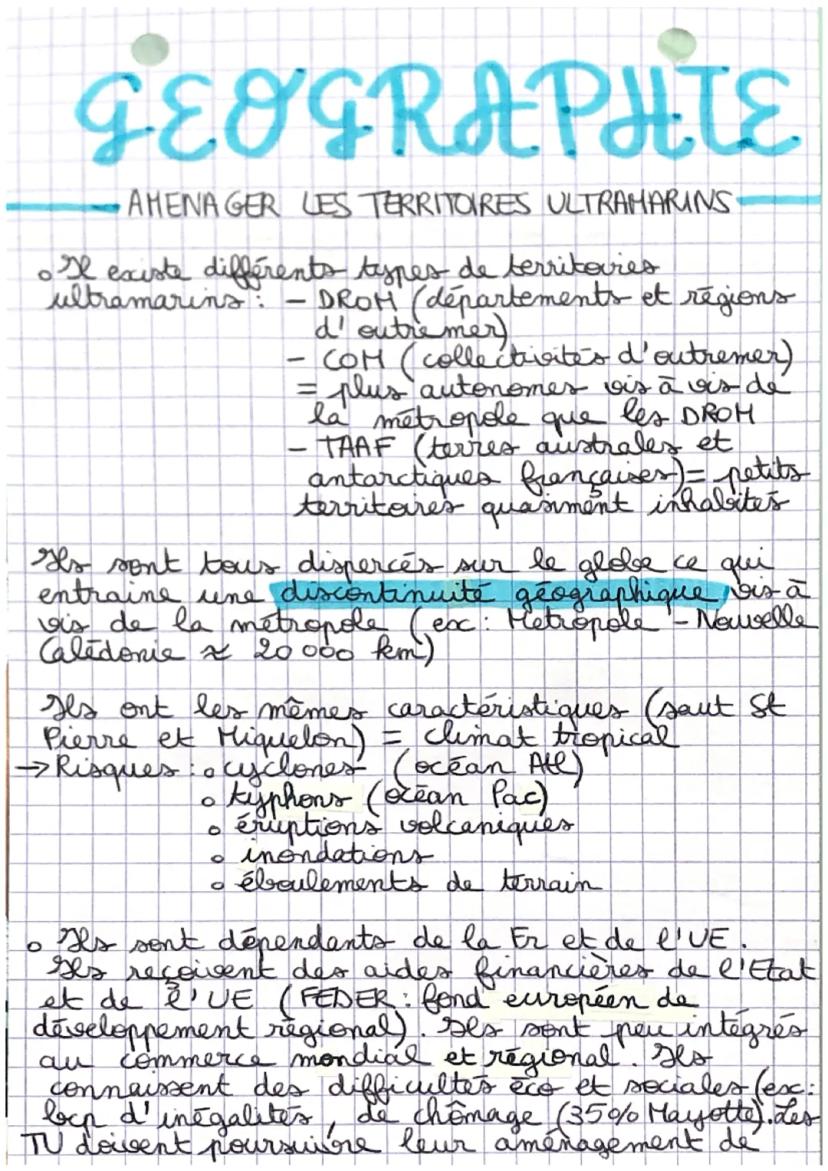 GEOGRAPHIE
AMENAGER LES TERRITOIRES ULTRAMARINS
o Il existe différents types de territoires
ultramarins : - DROM (départements et régions
d'outremer)
- COM (collectivités d'outremer)
= plus autonomes vis à vis de
la métropole que les DROM
- TAAF (terres australes et
antarctiques françaises) = petits
territoires quasiment inhabités
Ils sont tous dispercés sur le globe ce qui
entraine une discontinuité géographique vis à
vis de la métropole (ex : Métropole - Nouvelle
Calédonie ≈ 20 000 km)
Ils ont les mêmes caractéristiques (sauf St
Pierre et Miquelon) = climat tropical
→ Risques : o cyclones (océan Atl)
o typhons (océan Pac)
o éruptions volcaniques
o inondations
o éboulements de terrain
o Ils sont dépendants de la Fr et de l'UE.
Ils reçoivent des aides financières de l'Etat
et de l'UE (FEDER : fond européen de
développement régional). Ils sont peu intégrés
au commerce mondial et régional. Ils
connaissent des difficultés éco et sociales (ex :
bcp d'inégalités, de chômage (35% Mayotte). Les
TU doivent poursuivre leur aménagement de